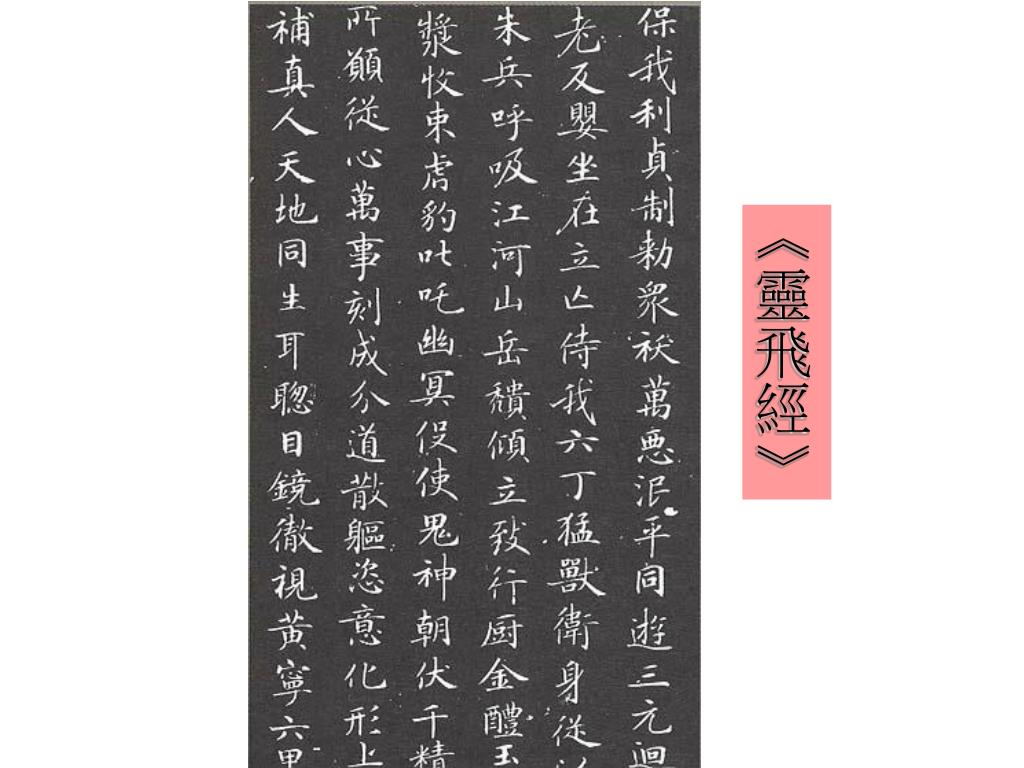 《靈飛經》
保我利貞制勑衆祅萬惡泯平同遊三元迴
老反嬰坐在立亡侍我六丁猛獸衛身從
朱兵呼吸江河山岳穨傾立致行厨金醴玉
漿收束虎豹叱吒幽冥役使鬼神朝伏千精
所願從心萬事刻成分道散軀恣意化形上
補真人天地同生耳聰目鏡徹視黃寧六甲